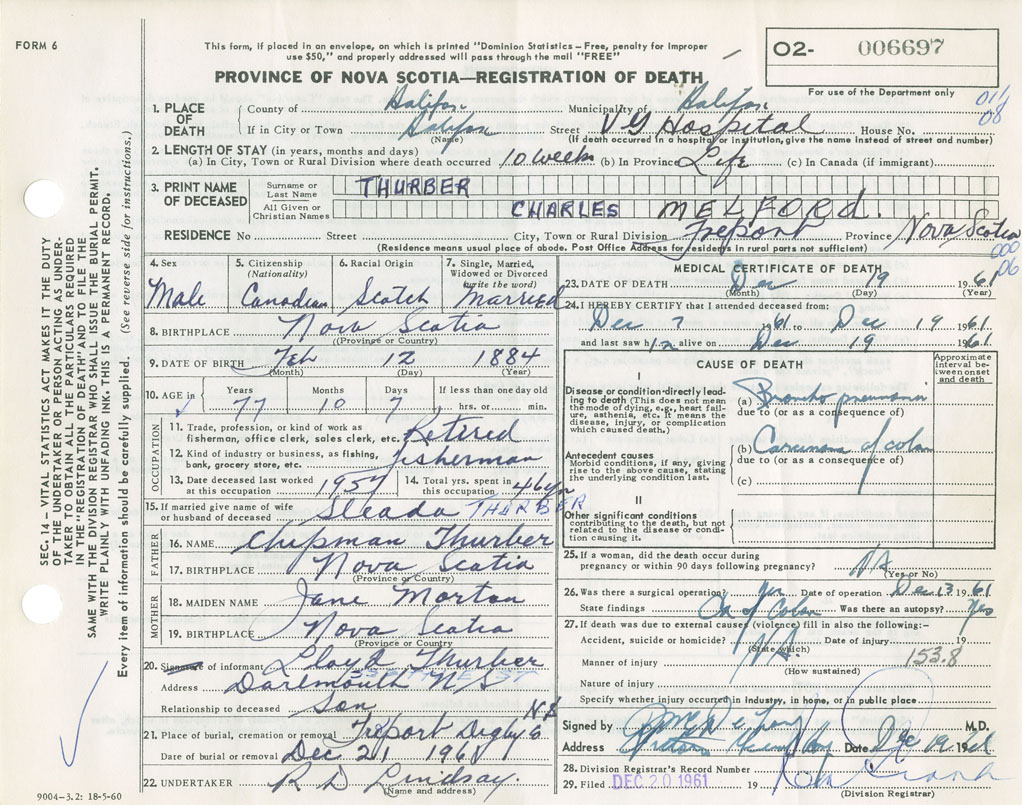 FORM 6
This form, if placed in an envelope, on which is printed "Dominion Statistics – Free, penalty for improper
use $50," and properly addressed will pass through the mail "FREE"
PROVINCE OF NOVA SCOTIA—REGISTRATION OF DEATH
O2- 006697
For use of the Department only
011
08
1. PLACE OF DEATH
County of Halifax Municipality of Halifax
If in City or Town Halifax Street V G Hospital House No.
(Name) (If death occurred in a hospital or institution, give name instead of street and number)
2. LENGTH OF STAY (in years, months and days)
(a) In City, Town or Rural Division where death occurred 10 weeks (b) In Province Life (c) In Canada (if immigrant)
3. PRINT NAME OF DECEASED
Surname or Last Name THURBER
All Given or Christian Names CHARLES MELFORD.
RESIDENCE No Street City, Town or Rural Division Freport Province Nova Scotia
(Residence means usual place of abode. Post Office Address for residents in rural parts not sufficient)
000
06
4. Sex
Male
5. Citizenship (Nationality)
Canadian
6. Racial Origin
Scotch
7. Single, Married, Widowed or Divorced (write the word)
Married
8. BIRTHPLACE Nova Scotia
(Province or Country)
9. DATE OF BIRTH Feb 12 1884
(Month) (Day) (Year)
10. AGE in Years Months Days If less than one day old
77 10 7 hrs. or min.
OCCUPATION
11. Trade, profession, or kind of work as
fisherman, office clerk, sales clerk, etc. Retired
12. Kind of industry or business, as fishing,
bank, grocery store, etc. fisherman
13. Date deceased last worked at this occupation 1957
14. Total yrs. spent in this occupation 46 yrs
15. If married give name of wife
or husband of deceased Sleada THURBER
FATHER
16. NAME Chipman Thurber
17. BIRTHPLACE Nova Scotia
(Province or Country)
MOTHER
18. MAIDEN NAME Jane Morton
19. BIRTHPLACE Nova Scotia
(Province or Country)
20. Signature of informant Lloyd Thurber
Address Dartmouth N/S
Relationship to deceased Son
21. Place of burial, cremation or removal Freport Digby Co N.S
Date of burial or removal Dec 21 1961
22. UNDERTAKER R D Lindsay.
(Name and address)
MEDICAL CERTIFICATE OF DEATH
23. DATE OF DEATH Dec 19 1961
(Month) (Day) (Year)
24. I HEREBY CERTIFY that I attended deceased from:
Dec 7 1961 to Dec 19 1961
and last saw him alive on Dec 19 1961
CAUSE OF DEATH
Approximate interval between onset and death
I
Disease or condition directly leading to death (This does not mean the mode of dying, e.g., heart failure, asthenia, etc. It means the disease, injury, or complication which caused death.)
(a) Broncho pneumonia
due to (or as a consequence of)
Antecedent causes
Morbid conditions, if any, giving rise to the above cause, stating the underlying condition last.
(b) Carcinoma of colon
due to (or as a consequence of)
(c)
II
Other significant conditions
contributing to the death, but not related to the disease or condition causing it.
25. If a woman, did the death occur during
pregnancy or within 90 days following pregnancy? NA
(Yes or No)
26. Was there a surgical operation? Yes Date of operation Dec 13 1961
State findings Ca of Colon Was there an autopsy? Yes
27. If death was due to external causes (violence) fill in also the following:–
Accident, suicide or homicide? NA Date of injury 19
(State which)
153.8
Manner of injury
(How sustained)
Nature of injury
Specify whether injury occurred in industry, in home, or in public place
Signed by M.D.
Address Date Dec 19 1961
28. Division Registrar's Record Number
29. Filed DEC 20 1961 19
(Division Registrar)
SEC. 14 – VITAL STATISTICS ACT MAKES IT THE DUTY
OF THE UNDERTAKER OR PERSON ACTING AS UNDER-
TAKER TO OBTAIN ALL THE PARTICULARS REQUIRED
IN THE "REGISTRATION OF DEATH" AND TO FILE THE
SAME WITH THE DIVISION REGISTRAR WHO SHALL ISSUE THE BURIAL PERMIT.
WRITE PLAINLY WITH UNFADING INK. THIS IS A PERMANENT RECORD.
Every item of information should be carefully supplied. (See reverse side for instructions.)
9004-3.2: 18-5-60